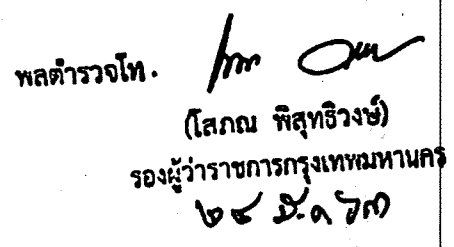 พลตำรวจโท.
(โสภณ พิสุทธิวงษ์)
รองผู้ว่าราชการกรุงเทพมหานคร
๒๔ มี.ค. ๖๓